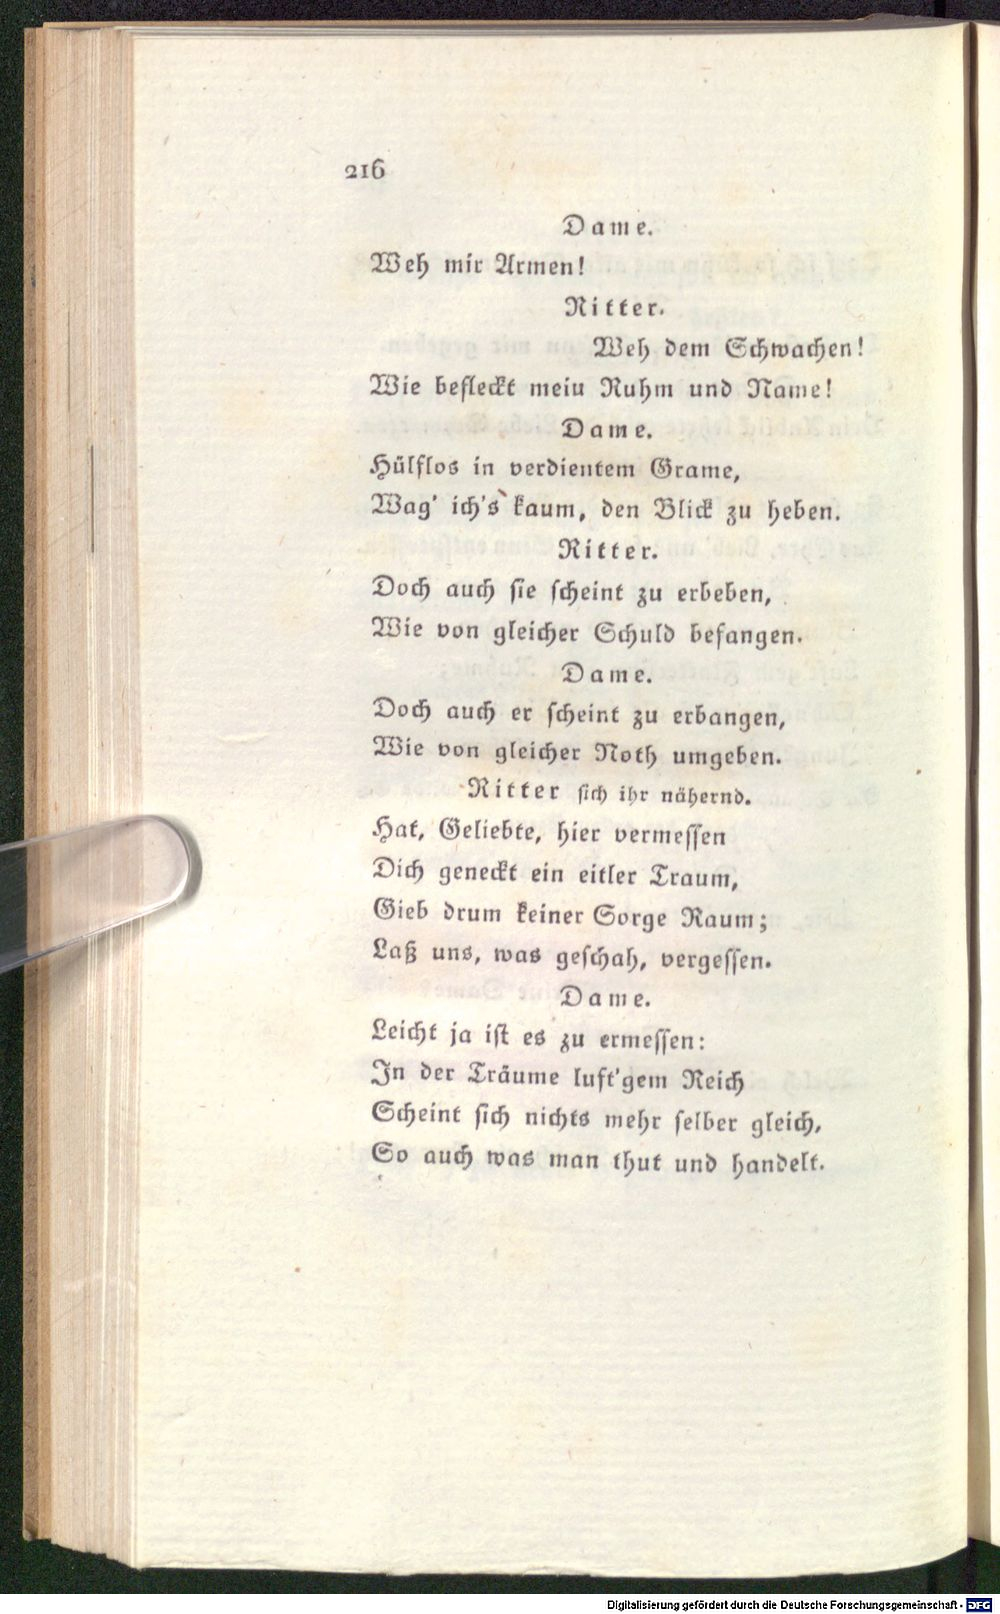 216
Dame.
Weh mir Armen!
Ritter.
Weh dem Schwachen!
Wie befleckt meiu Ruhm und Name!
Dame.
Hülflos in verdientem Grame,
Wag' ich's kaum, den Blick zu heben.
Ritter.
Doch auch sie scheint zu erbeben,
Wie von gleicher Schuld befangen.
Dame.
Doch auch er scheint zu erbangen,
Wie von gleicher Noth umgeben.
Ritter sich ihr nähernd.
Hat, Geliebte, hier vermessen
Dich geneckt ein eitler Traum,
Gieb drum keiner Sorge Raum;
Laß uns, was geschah, vergessen.
Dame.
Leicht ja ist es zu ermessen:
In der Träume luft'gem Reich
Scheint sich nichts mehr selber gleich,
So auch was man thut und handelt.
Digitalisierung gefördert durch die Deutsche Forschungsgemeinschaft - DFG